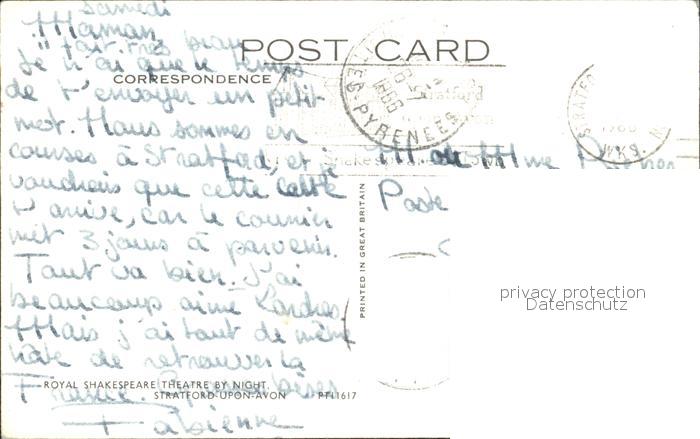 Samedi
Maman
Il fait très beau
POST CARD
Je n'ai que le temps
CORRESPONDENCE
de t'envoyer un petit
mot. Nous sommes en
courses à Stratford, et je
voudrais que cette carte
t'arrive, car le courrier
met 3 jours à parvenir.
Tout va bien. J'ai
beaucoup aimé Londres
Mais j'ai tout de même
hâte de retrouver la
France. Grosses bises
Fabienne
ROYAL SHAKESPEARE THEATRE BY NIGHT.
STRATFORD-UPON-AVON PT11617
PRINTED IN GREAT BRITAIN
LES-PYRENEES
Stratford
Shakespeare
STRATFO
WKS.
M et Mme
Poste
privacy protection
Datenschutz